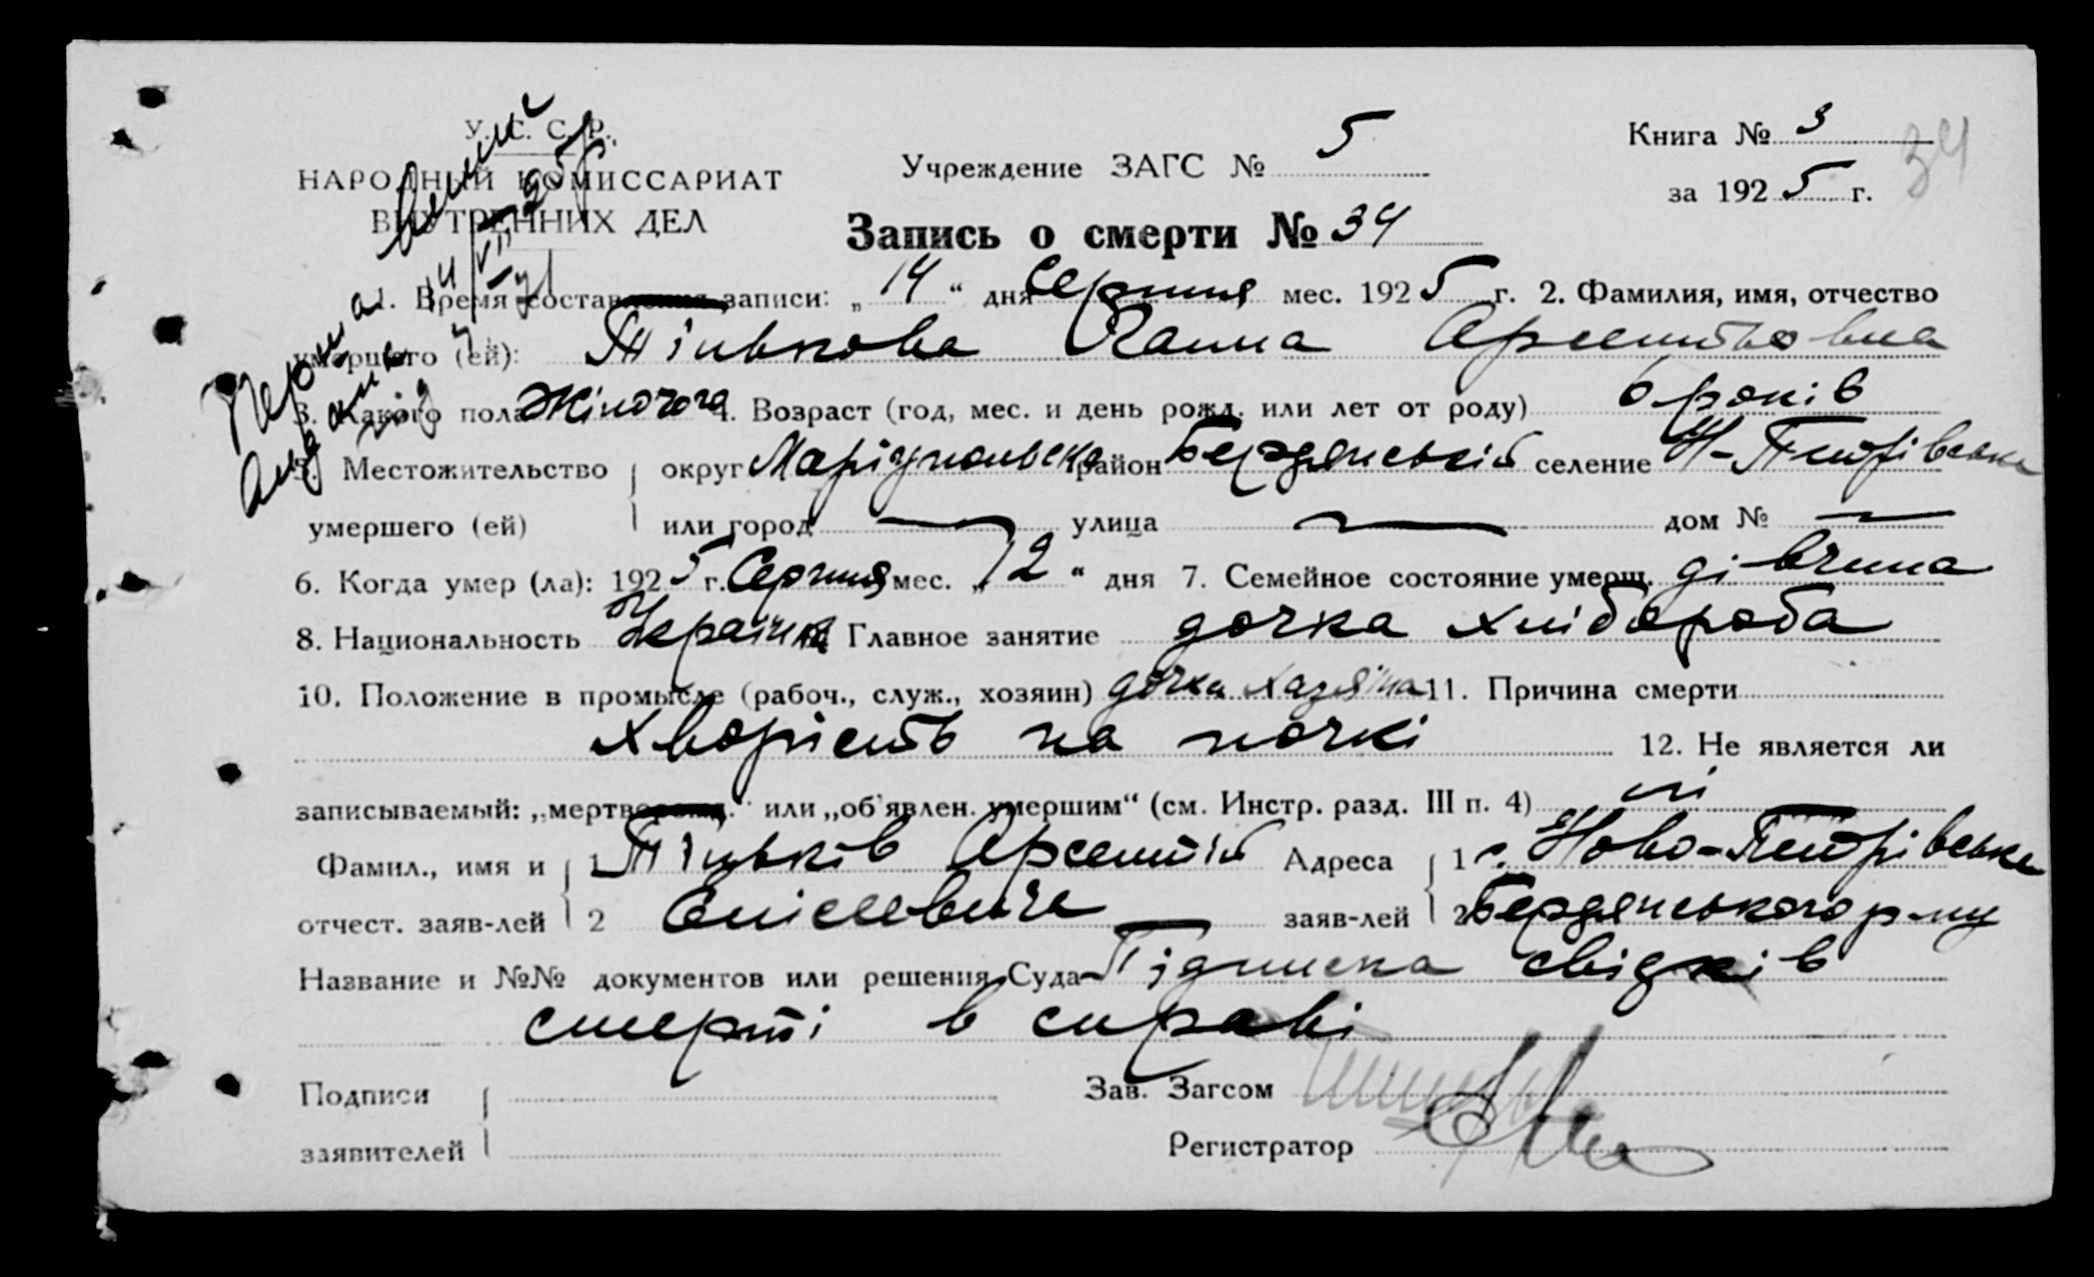 У. С. С. Р.
НАРОДНЫЙ КОМИССАРИАТ
ВНУТРЕННИХ ДЕЛ
Учреждение ЗАГС № 5
Книга № 3
за 1925 г.
34
Запись о смерти № 34
1. Время составления записи: „14“ дня Серпня мес. 1925 г. 2. Фамилия, имя, отчество
умершего (ей): Тінькова Ганна Арсентьовна
3. Какого пола Жіночого 4. Возраст (год, мес. и день рожд. или лет от роду) 6 років
5. Местожительство округ Маріупольська район Бердянській селение Н-Петрівське
умершего (ей) или город — улица — дом № —
6. Когда умер (ла): 1925 г. Серпня мес. „12“ дня 7. Семейное состояние умерш. дівчина
8. Национальность Українка Главное занятие дочка хлібороба
10. Положение в промысле (рабоч., служ., хозяин) дочка хазяїна 11. Причина смерти
хворість на почкі 12. Не является ли
записываемый: „мертворожд.“ или „об'явлен. умершим“ (см. Инстр. разд. III п. 4) ні
Фамил., имя и 1 Тіньків Арсентій Адреса 1 с. Ново-Петрівське
отчест. заяв-лей 2 Єлісеевиче — заяв-лей 2 Бердянського р-ну
Название и №№ документов или решения Суда Підписка свідків
смерті в справі
Подписи Зав. Загсом
заявителей Регистратор